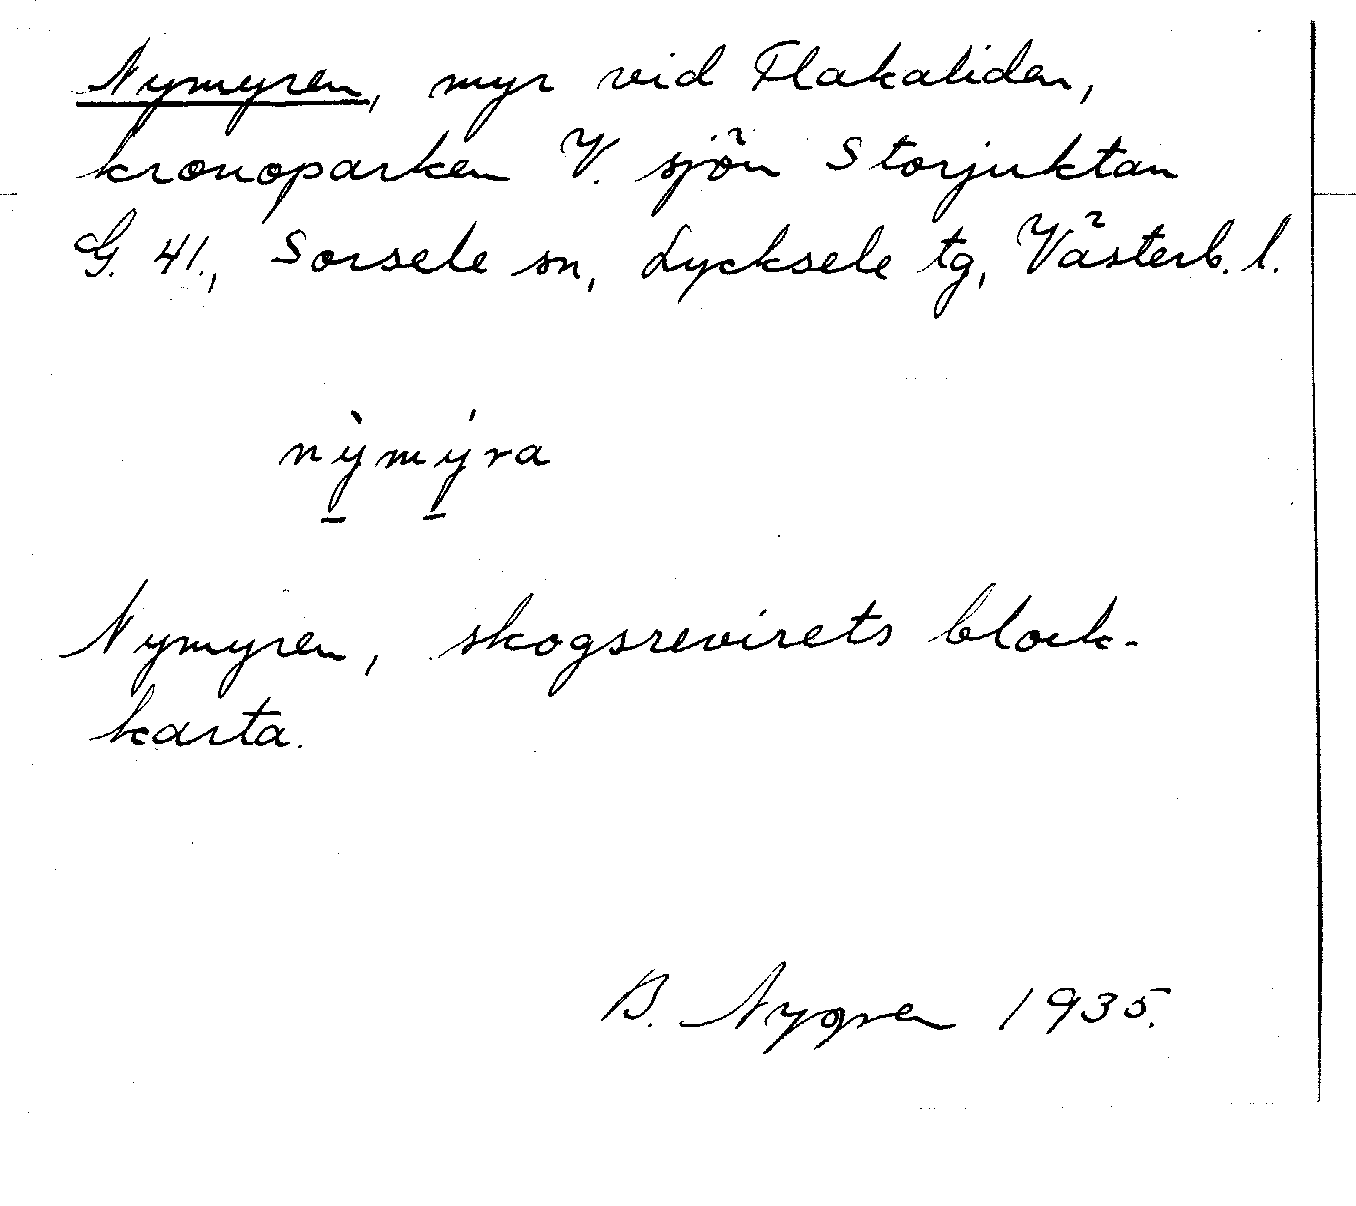 Nymyren, myr vid Flakaliden,
kronoparken V. sjön Storjuktan
G. 41., Sorsele sn, Lycksele tg, Västerb. l.
nỳ̠mý̠ra
Nymyren, skogsrevirets block-
karta.
B. Nygren 1935.